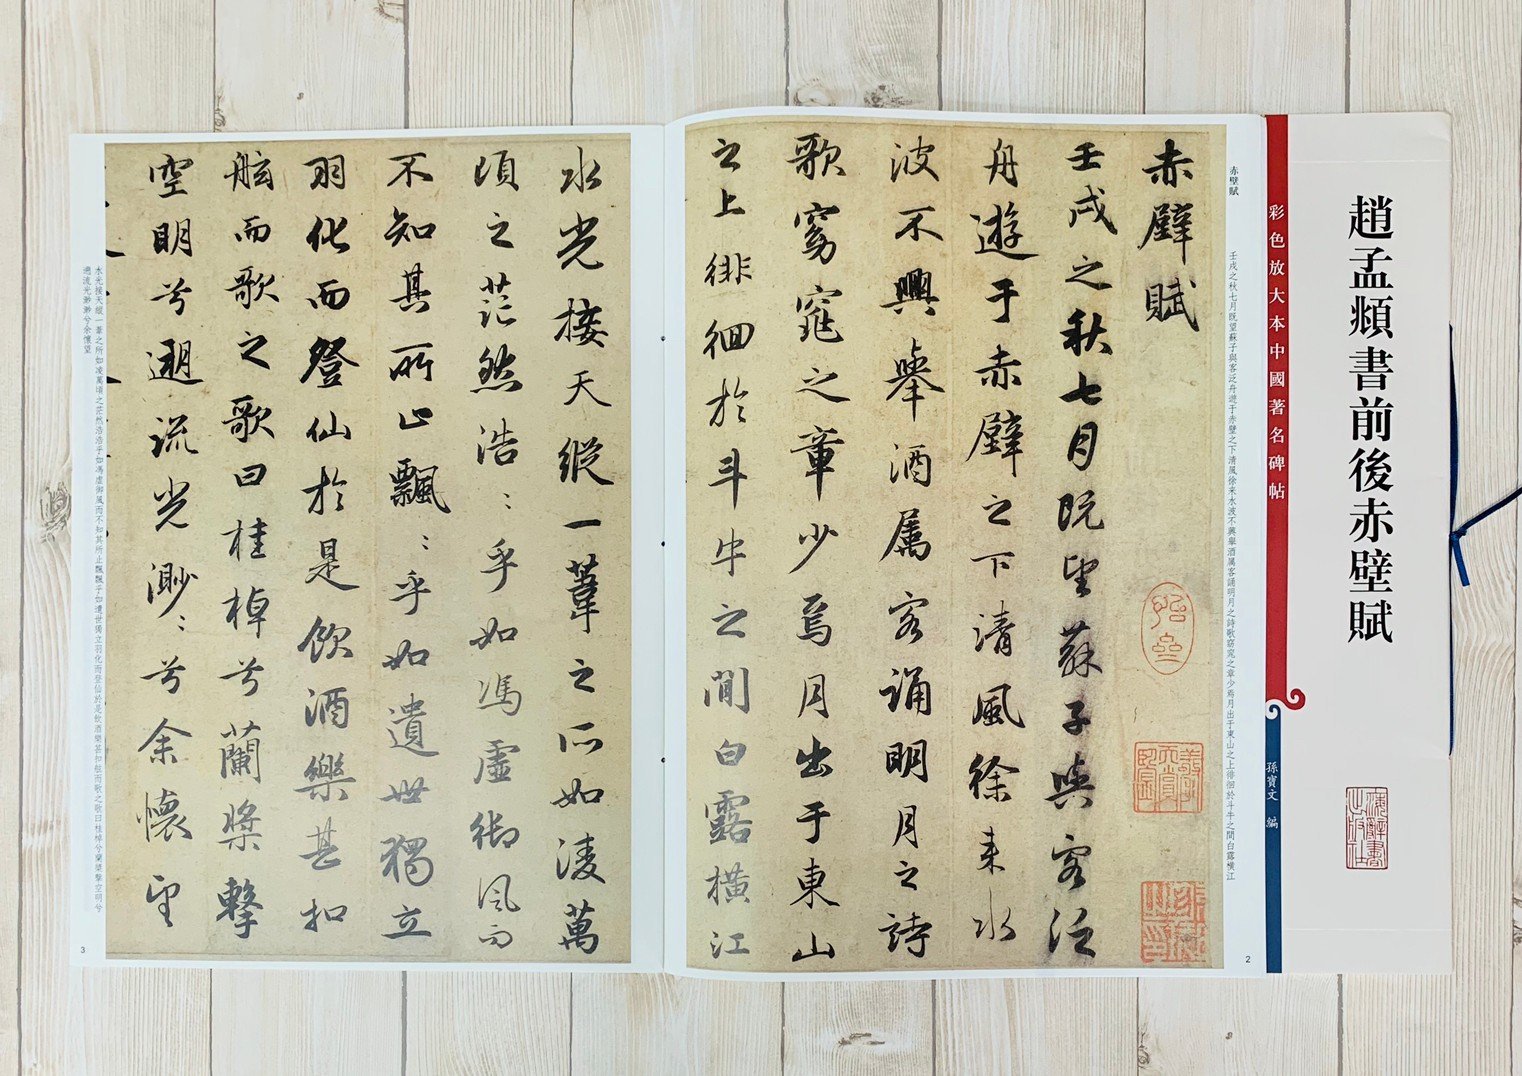 趙孟頫書前後赤壁賦
彩色放大本中國著名碑帖
孫寶文 編
赤壁賦
壬戌之秋七月既望蘇子與客泛舟遊于赤壁之下清風徐来水波不興舉酒属客誦明月之詩歌窈窕之章少焉月出于東山之上徘徊於斗牛之間白露橫江
2
赤壁賦
壬戌之秋七月既望蘇子與客泛
舟遊于赤壁之下清風徐来水
波不興舉酒属客誦明月之詩
歌窈窕之章少焉月出于東山
之上徘徊於斗牛之間白露橫江
水光接天縱一葦之所如凌萬
頃之茫然浩〻乎如馮虛御風而
不知其所止飄〻乎如遺世獨立
羽化而登仙於是飲酒樂甚扣
舷而歌之歌曰桂棹兮蘭槳擊
空明兮遡流光渺〻兮余懷望
水光接天縱一葦之所如凌萬頃之茫然浩浩乎如馮虛御風而不知其所止飄飄乎如遺世獨立羽化而登仙於是飲酒樂甚扣舷而歌之歌曰桂棹兮蘭槳擊空明兮
遡流光渺渺兮余懷望
3